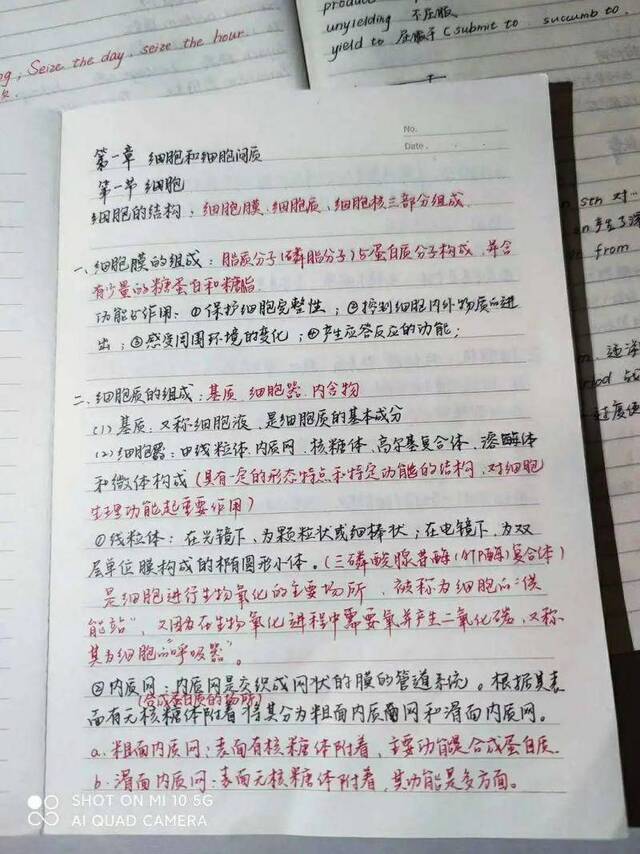 Seize the day, seize the hour
produce
unyielding 不屈服
yield to 屈服于 (submit to succumb to
sth 对
from
No.
Date.
第一章 细胞和细胞间质
第一节 细胞
细胞的结构：细胞膜、细胞质、细胞核三部分组成
一、细胞膜的组成：脂质分子(磷脂分子)与蛋白质分子构成，并含
有少量的糖蛋白和糖脂
功能与作用：①保护细胞完整性；②控制细胞内外物质的进
出；③感受周围环境的变化；④产生应答反应的功能；
二、细胞质的组成：基质、细胞器、内含物
(1) 基质：又称细胞液，是细胞质的基本成分
(2) 细胞器：由线粒体、内质网、核糖体、高尔基复合体、溶酶体
和微体构成(具有一定的形态特点和特定功能的结构，对细胞
生理功能起重要作用)
①线粒体：在光镜下，为颗粒状或细棒状；在电镜下，为双
层单位膜构成的椭圆形小体。(三磷酸腺苷酶(ATP酶)复合体)
是细胞进行生物氧化的主要场所，被称为细胞的"供
能站"，又因为在生物氧化进程中需要氧并产生二氧化碳，又称
其为细胞的"呼吸器"。
②内质网：内质网是交织成网状的膜的管道系统。根据其表
(合成蛋白质的场所)
面有无核糖体附着将其分为粗面内质网和滑面内质网。
a. 粗面内质网：表面有核糖体附着，主要功能是合成蛋白质
b. 滑面内质网：表面无核糖体附着，其功能是多方面。
SHOT ON MI 10 5G
AI QUAD CAMERA